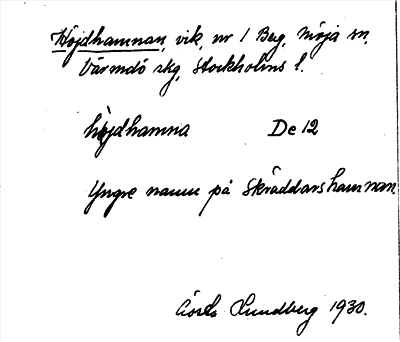 Höjdhamnan, vik, nr 1 Berg, Möja sn,
Värmdö skg, Stockholms l.
höjdhamna De 12
Yngre namn på Skräddarshamnan.
Gösta Lundberg 1930.